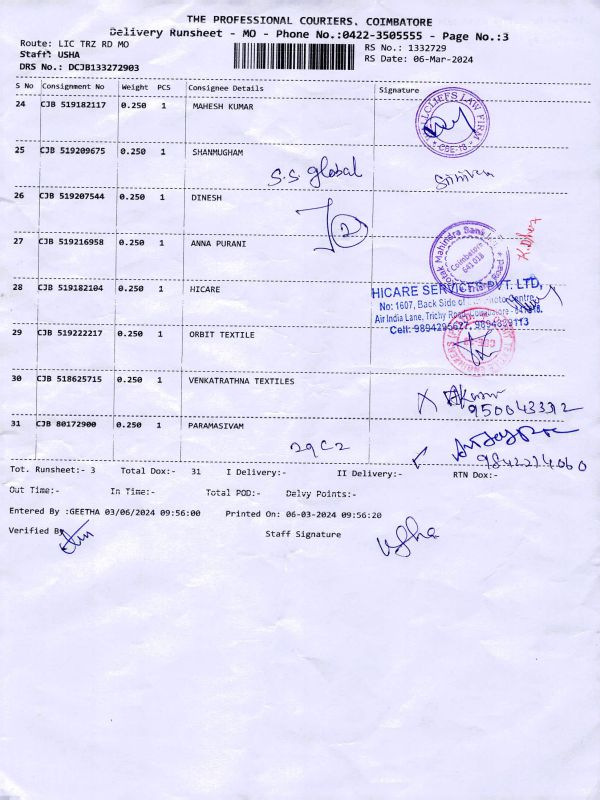 THE PROFESSIONAL COURIERS, COIMBATORE
Delivery Runsheet - MO - Phone No.:0422-3505555 - Page No.:3
Route: LIC TRZ RD MO
RS No.: 1332729
Staff: USHA
RS Date: 06-Mar-2024
DRS No.: DCJB133272903
S No Consignment No Weight PCS Consignee Details Signature
24 CJB 519182117 0.250 1 MAHESH KUMAR
LAW FIRM
CBE-18
25 CJB 519209675 0.250 1 SHANMUGHAM
S.S. Global
26 CJB 519207544 0.250 1 DINESH
2
27 CJB 519216958 0.250 1 ANNA PURANI
Mahindra Bank
Coimbatore
641 018
28 CJB 519182104 0.250 1 HICARE
HICARE SERVICES PVT. LTD,
No: 1607, Back Side of Centre,
Air India Lane, Trichy Road, Coimbatore - 641 018.
Cell: 9894295627, 9894839113
29 CJB 519222217 0.250 1 ORBIT TEXTILE
30 CJB 518625715 0.250 1 VENKATRATHNA TEXTILES
31 CJB 80172900 0.250 1 PARAMASIVAM
29C2
Tot. Runsheet:- 3 Total Dox:- 31 I Delivery:- II Delivery:- RTN Dox:-
Out Time:- In Time:- Total POD:- Delvy Points:-
Entered By :GEETHA 03/06/2024 09:56:00 Printed On: 06-03-2024 09:56:20
Verified By
Staff Signature
Usha